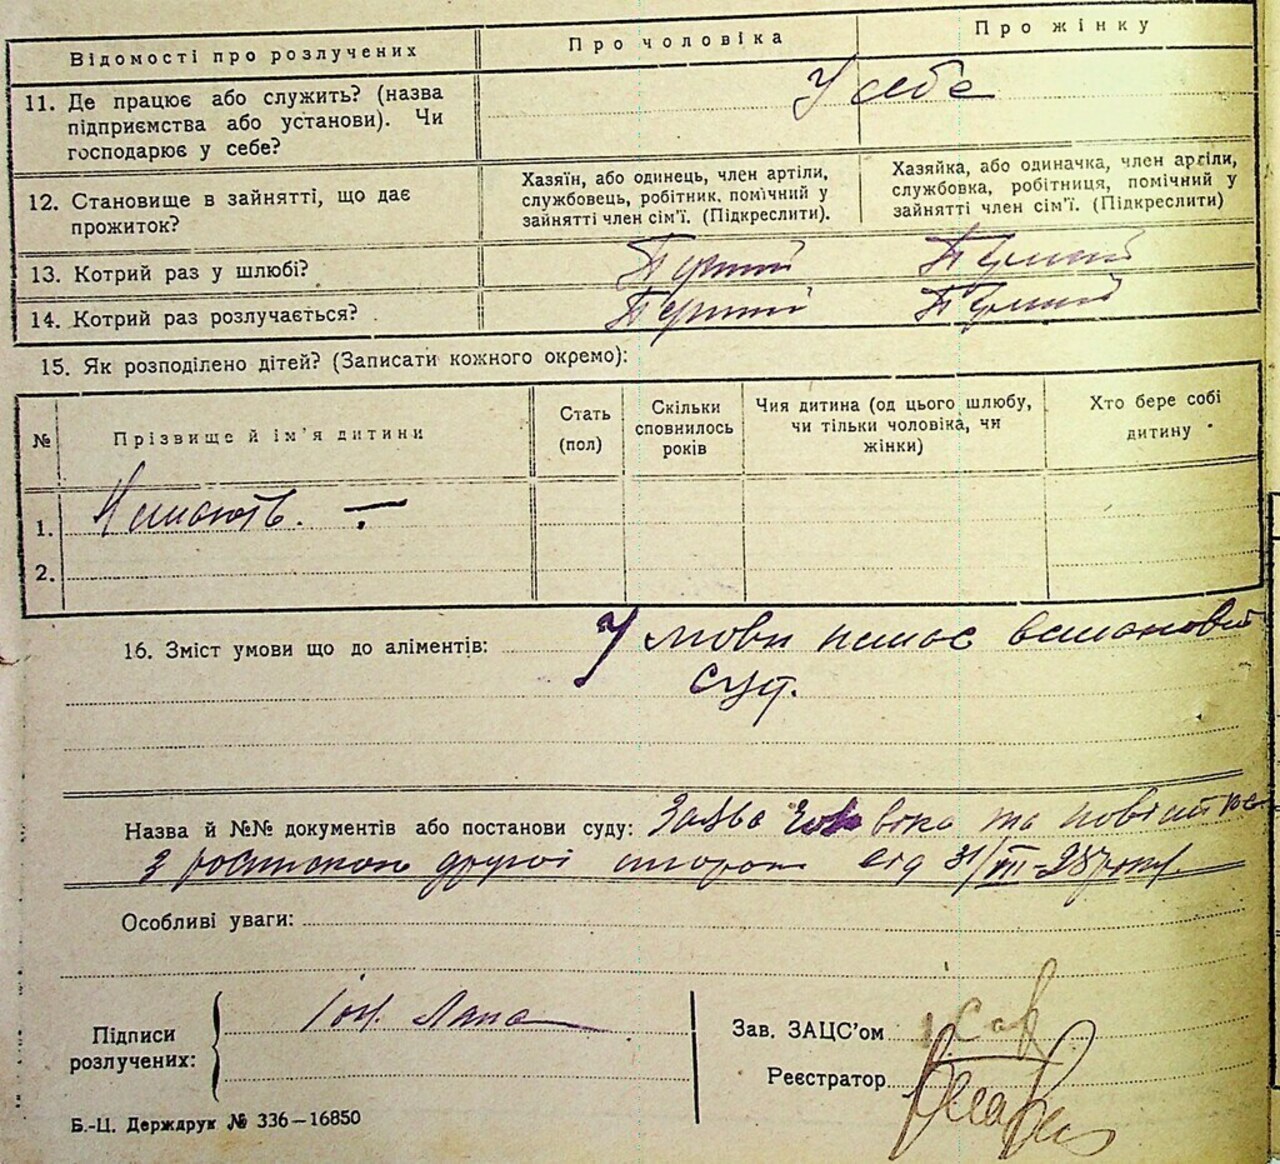 Відомості про розлучених
Про чоловіка
Про жінку
11. Де працює або служить? (назва
підприємства або установи). Чи
господарює у себе?
У себе
12. Становище в зайнятті, що дає
прожиток?
Хазяїн, або одинець, член артіли,
службовець, робітник, помічний у
зайнятті член сім'ї. (Підкреслити).
Хазяйка, або одиначка, член артіли,
службовка, робітниця, помічний у
зайнятті член сім'ї. (Підкреслити)
13. Котрий раз у шлюбі?
Перший
Перший
14. Котрий раз розлучається?
Перший
Перший
15. Як розподілено дітей? (Записати кожного окремо):
№
Прізвище й ім'я дитини
Стать
(пол)
Скільки
сповнилось
років
Чия дитина (од цього шлюбу,
чи тільки чоловіка, чи
жінки)
Хто бере собі
дитину
1. Немають. —
2.
16. Зміст умови що до аліментів: Умови немає
суд.
Назва й №№ документів або постанови суду: Заява чоловіка та повістка
з розпискою другої сторони від 31/III-28 року.
Особливі уваги:
Підписи
розлучених:
Лапа
Зав. ЗАЦС'ом
Реєстратор
Б.-Ц. Держдрук № 336—16850